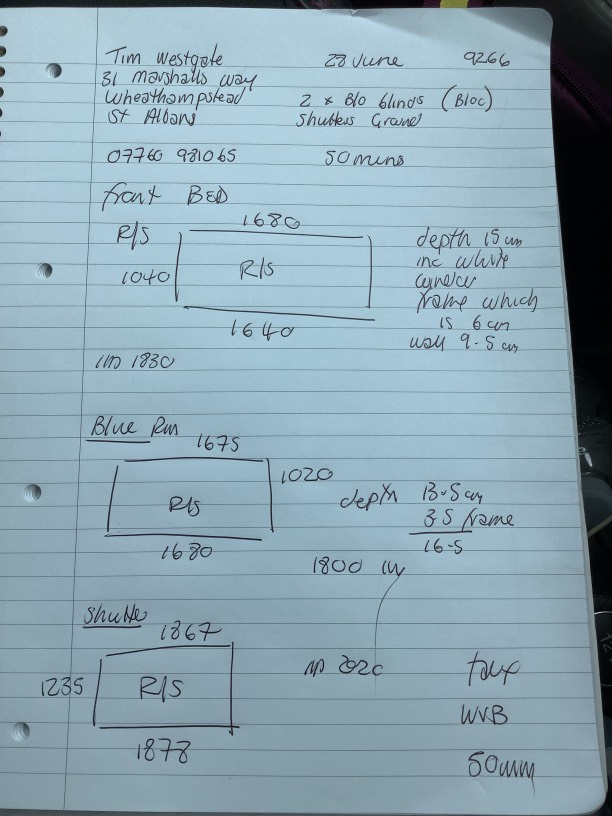 Tim Westgate 28 June 9266
31 marshalls way
Wheathampstead 2 x B/o blinds (Bloc)
St Albans Shutters Ground
07760 981065 50mins
front BED
R/S 1680
1040 R/S
1640
depth 15cm
inc white
window
frame which
is 6cm
wall 9-5cm
1830
Blue Rm
1675
R/S 1020
1680
depth 13.5cm
3.5 frame
16-5
1800
Shutter
1867
1235 R/S
1878
2020
WVB
50mm